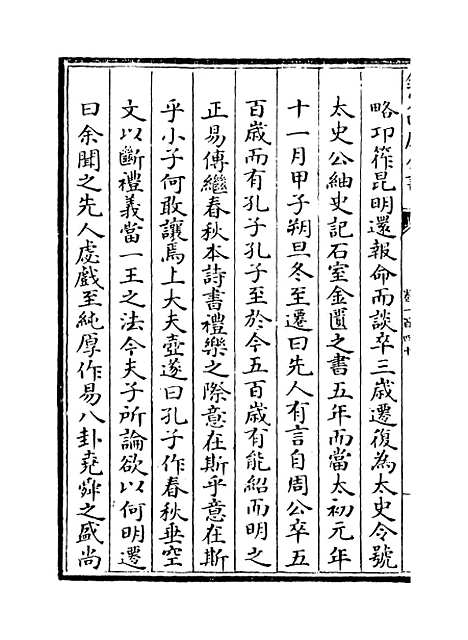 略邛筰昆明還報命而談卒三歳遷復為太史令號
太史公紬史記石室金匱之書五年而當太初元年
十一月甲子朔旦冬至遷曰先人有言自周公卒五
百歳而有孔子孔子至於今五百歳有能紹而明之
正易傳繼春秋本詩書禮樂之際意在斯乎意在斯
乎小子何敢讓焉上大夫壺遂曰孔子作春秋垂空
文以斷禮義當一王之法今夫子所論欲以何明遷
曰余聞之先人虙戲至純厚作易八卦堯舜之盛尚